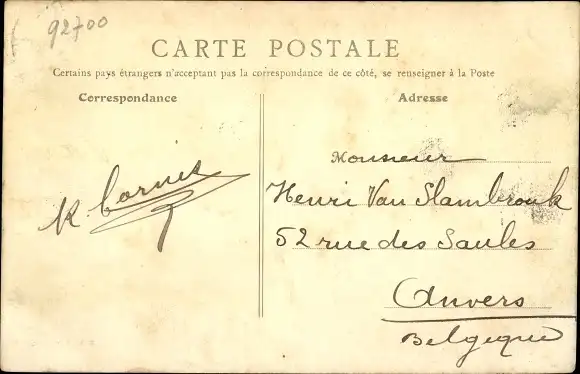 92700
CARTE POSTALE
Certains pays étrangers n'acceptent pas la correspondance de ce côté, se renseigner à la Poste
Correspondance
Adresse
Monsieur
Henri Van Slambrouk
52 rue des Saules
Anvers
Belgique
K. Cornis